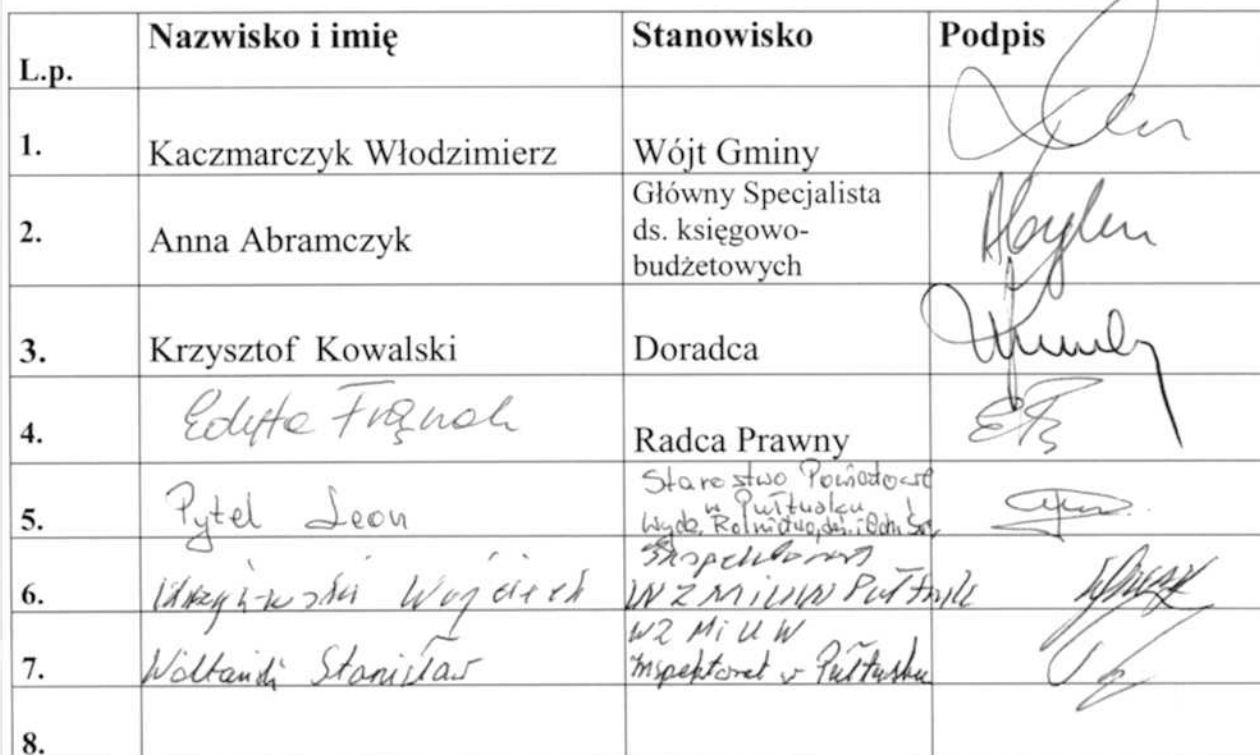 L.p. Nazwisko i imię Stanowisko Podpis
1. Kaczmarczyk Włodzimierz Wójt Gminy
2. Anna Abramczyk Główny Specjalista
ds. księgowo-
budżetowych
3. Krzysztof Kowalski Doradca
4. Edyta Radca Prawny
5. Pytel Leon Starostwo Powiatowe
w Pułtusku
Wydz. Rolnictwa, i Och. Śr.
6. Wojciech Inspektorat
WZMiUW Pułtusk
7. Stanisław WZMiUW
Inspektorat w Pułtusku
8.